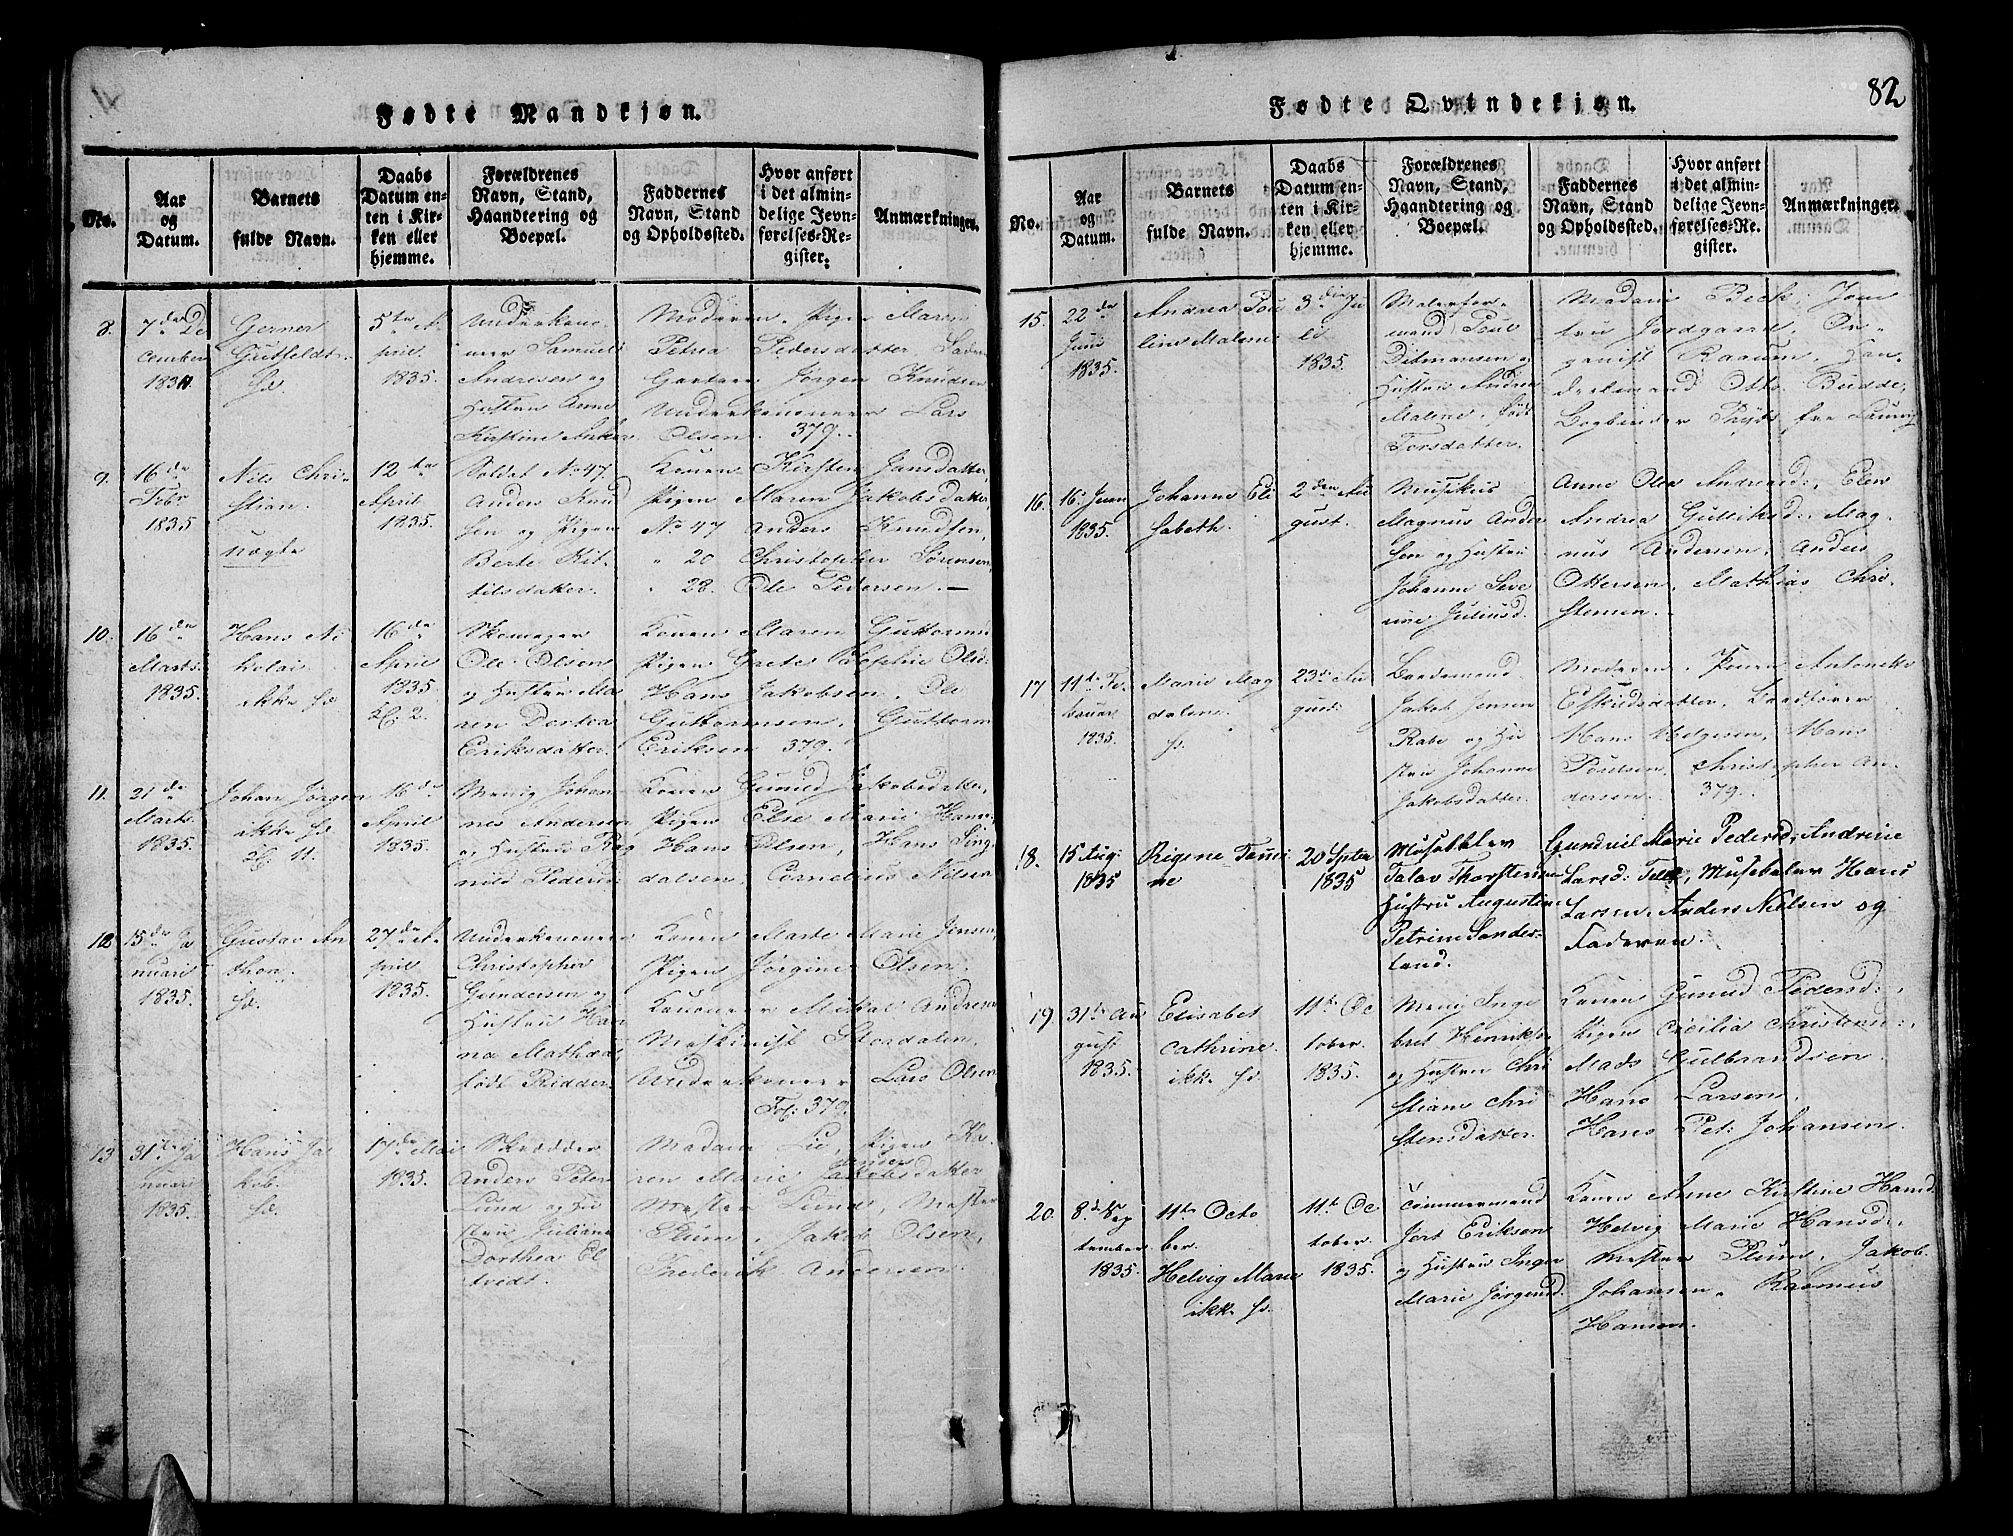 Fødte Mandkjøn.
No.
Aar og Datum.
Barnets fulde Navn.
Daabs Datum enten i Kirken eller hjemme.
Forældrenes Navn, Stand, Haandtering og Boepæl.
Faddernes Navn, Stand og Opholdssted.
Hvor anført i det almindelige Jevnførelses-Register.
Anmærkninger.
8.
7de De
cember
183
Gerner
Gutfeldt
5te A
pril
1835.
Underkano
neer Samuel
Andresen og
Hustru Anne
Kirstine Ander
Moderen, Pigen Maren
Petrea Pedersdatter,
Gartner Jørgen Knudsen
Underkanoneer Lars
Olsen. 379.
9.
16de
Febr
1835
Nils Chri
stian.
uægte
12te
April
1835.
Soldat No 47
Anders Knud
sen og Pigen
Berte Kit
tilsdatter.
Konen Kirsten Jansdatter,
Pigen Maren Jakobsdatter
No 47 Anders Knudsen,
" 20 Christopher Sørensen,
" 28. Ole Pedersen. —
10.
16de
Marts
1835.
Hans Ni
kolai.
ikke
16de
April
1835
Skomager
Ole Olsen
og Hustru Ma
ren Dortea
Eriksdatter.
Konen Maren Guttorms
Pigen Grete Sophie Olsd.
Hans Jakobsen, Ole
Guttormsen, Guttorm
Eriksen 379.
11.
21de
Marts
1835.
Johan Jørgen
ikke
16de
April
1835.
Menig Johan
nes Andersen
og Hustrue Rag
nild Peders
Konen Gunild Jakobsdatter,
Pigen Else Marie Hans
Hans Olsen, Hans Sing
dalsen, Cornelius Nilsen
12.
15de Ja
nuari
1835.
Gustav An
thon.
27de A
pril
1835.
Underkanoneer
Christopher
Gundersen og
Hustru Han
na Mathea
født Ridder
Konen Marte Marie Jensen,
Pigen Jørgine Olsen.
Kanoneer Mikal Andresen
Maskinist Stordalen,
Underkanoneer Lars Olsen
Fol: 379.
13
31te Ja
nuari
1835.
Hans Ja
kob.
17de Mai
1835.
Skrædder
Anders Peter
Lund og Hu
stru Juliane
Dorthea El
tvedt.
Madam Lie, Pigen Ka
ren Marie Jakobsdatter
Mester Lund, Mester
Plum, Jakob Olsen,
Frederik Andersen.
82
Fødte Qvindekjøn.
No.
Aar og Datum.
Barnets fulde Navn.
Daabs Datum enten i Kirken eller hjemme.
Forældrenes Navn, Stand, Haandtering og Boepæl.
Faddernes Navn, Stand og Opholdssted.
Hvor anført i det almindelige Jevnførelses-Register.
Anmærkninger.
15.
22de
Juni
1835.
Andrea Pou
line Malene
3die Ju
li
1835.
Malerfor
mand Poul
Ditmansen og
Hustru Andrea
Malene, født
Torsdatter.
Madam Beck, Jom
fru Jordgaard, Or
ganist Raaum, Han
delsmand Otto Budde,
Bogbinder Thybo fra Laurvig
16.
16. Juni
1835.
Johanne Eli
sabeth.
2den Au
gust.
Musikus
Magnus Ander
sen og Hustru
Johanne Seve
rine Juliusd.
Anne Olea Andreasd., Elen
Andrea Gulliksd., Mag
nus Andersen, Anders
Ottersen, Mathias Chri
stensen.
17
11te Fe
bruar
1835.
Marie Mag
dalene.
23de Au
gust.
Bordsmand
Jakob Jensen
Rabe og Hu
stru Johanne
Jakobsdatter.
Moderen, Konen Antonette
Eskildsdatter,
Hans Helgesen, Hans
Poulsen, Christopher An
dersen. 379.
18.
15 Aug:
1835
Rigine Tomi
ne
20 Septbr
1835
Musketeer
Tolav Thorstensen
Hustru Augustine
Petrine Sonder-
land.
Gundvil Marie Pedersd, Andrine
Larsd: Teie, Musketeer Hans
Larsen, Anders Nielsen og
Faderen.
19
31te Au
gust
1835.
Elisabet
Cathrine.
ikke
11te Oc
tober.
1835.
Menig Inge
bret Henriks.
og Hustru Chri
stiane Chri
stensdatter.
Konen Gunild Pedersd:,
Pigen Cicilia Christens:,
Mads Gulbrandsen
Hans Larsen,
Hans Pet: Johansen.
20.
8de Sep
tember
1835.
11te Octo
ber.
Helvig Marie
ikke
11te Oc
tober.
1835.
Tømmermand
Jort Eriksen
og Hustru Inger
Marie Jørgensd.
Konen Anne Kirstine Hansd.
Helvig Marie Hansd:,
Mester Plum, Jakob
Johansen, Rasmus
Hansen.